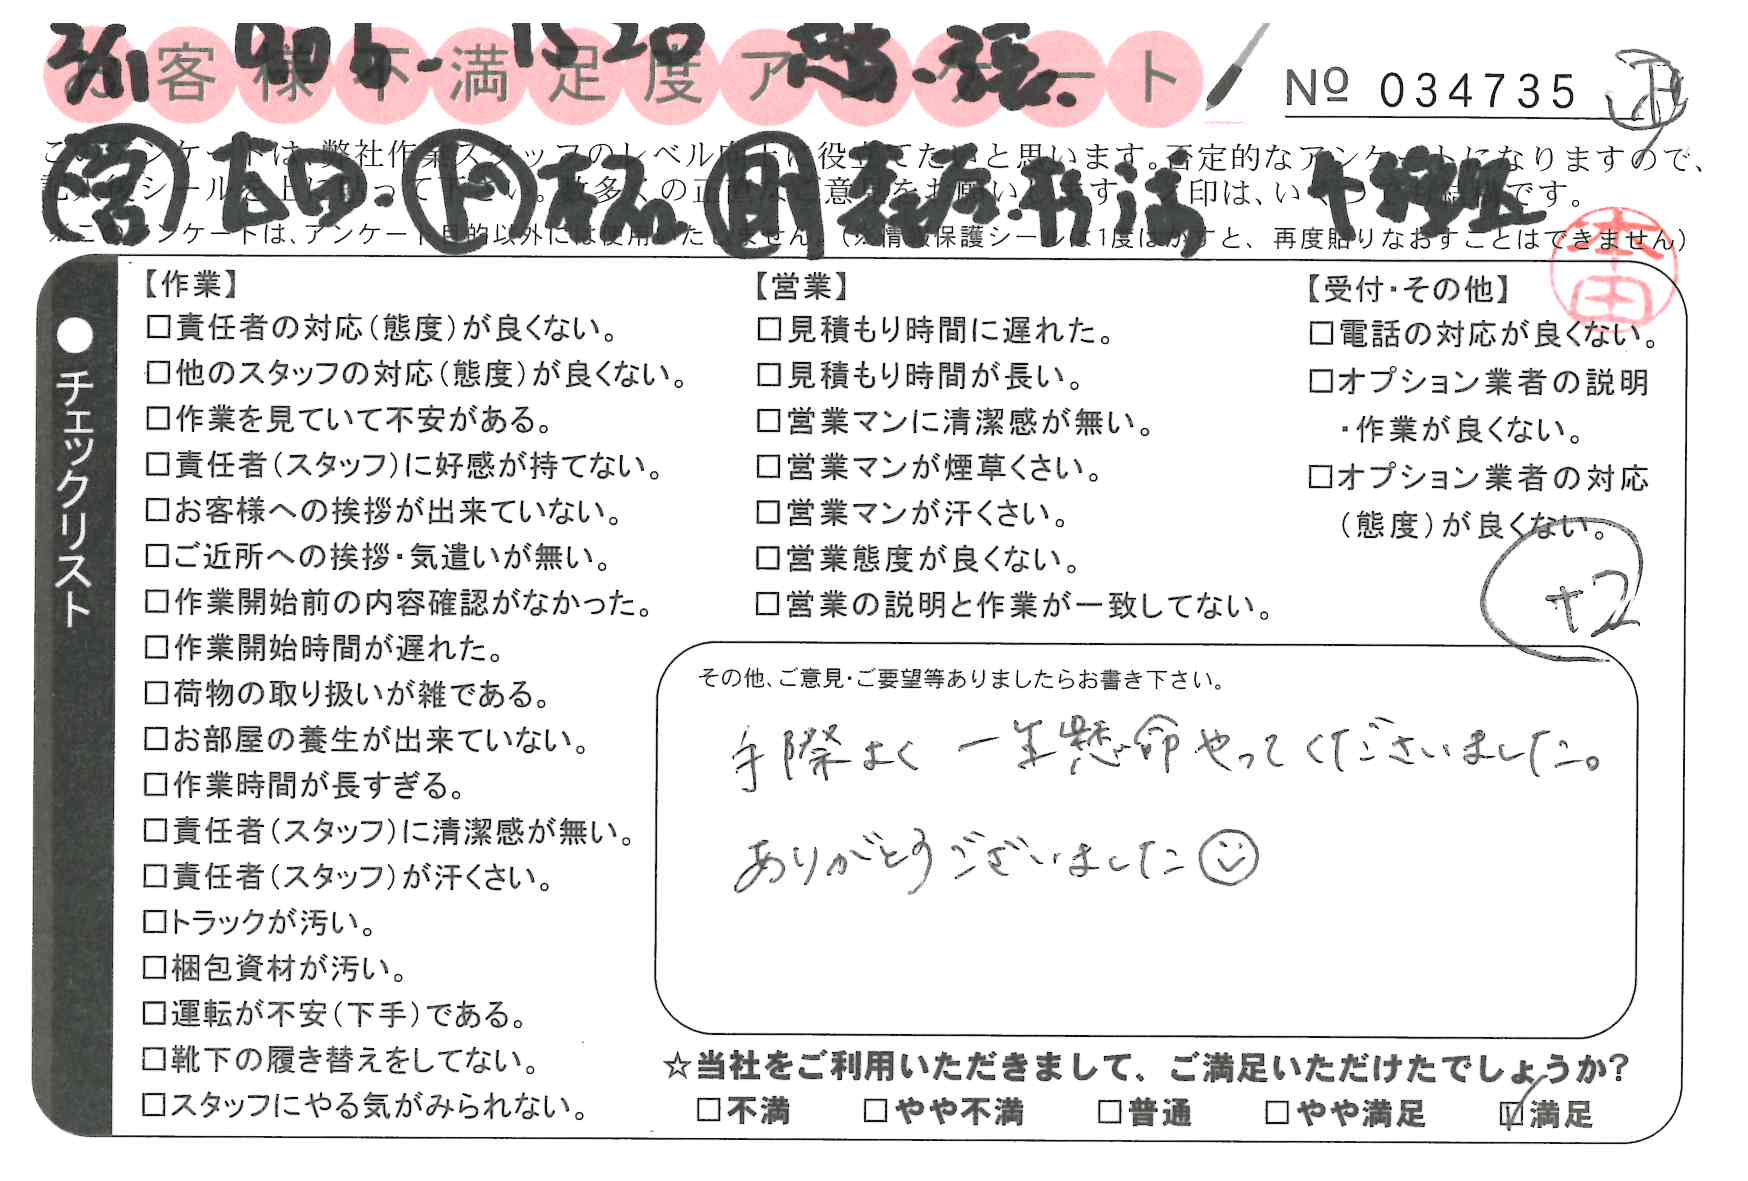 お客様不満足度アンケート
№ 034735
このアンケートは、弊社作業スタッフのレベル向上に役立てたいと思います。否定的なアンケートになりますので、
※このアンケートは、アンケート目的以外には使用いたしません。(※情報保護シールは1度はがすと、再度貼りなおすことはできません)
本田
●チェックリスト
【作業】
□責任者の対応(態度)が良くない。
□他のスタッフの対応(態度)が良くない。
□作業を見ていて不安がある。
□責任者(スタッフ)に好感が持てない。
□お客様への挨拶が出来ていない。
□ご近所への挨拶・気遣いが無い。
□作業開始前の内容確認がなかった。
□作業開始時間が遅れた。
□荷物の取り扱いが雑である。
□お部屋の養生が出来ていない。
□作業時間が長すぎる。
□責任者(スタッフ)に清潔感が無い。
□責任者(スタッフ)が汗くさい。
□トラックが汚い。
□梱包資材が汚い。
□運転が不安(下手)である。
□靴下の履き替えをしてない。
□スタッフにやる気がみられない。
【営業】
□見積もり時間に遅れた。
□見積もり時間が長い。
□営業マンに清潔感が無い。
□営業マンが煙草くさい。
□営業マンが汗くさい。
□営業態度が良くない。
□営業の説明と作業が一致してない。
【受付・その他】
□電話の対応が良くない。
□オプション業者の説明
・作業が良くない。
□オプション業者の対応
(態度)が良くない。
+2
その他、ご意見・ご要望等ありましたらお書き下さい。
手際よく一生懸命やってくださいました。
ありがとうございました
☆当社をご利用いただきまして、ご満足いただけたでしょうか?
□不満 □やや不満 □普通 □やや満足 ☑満足